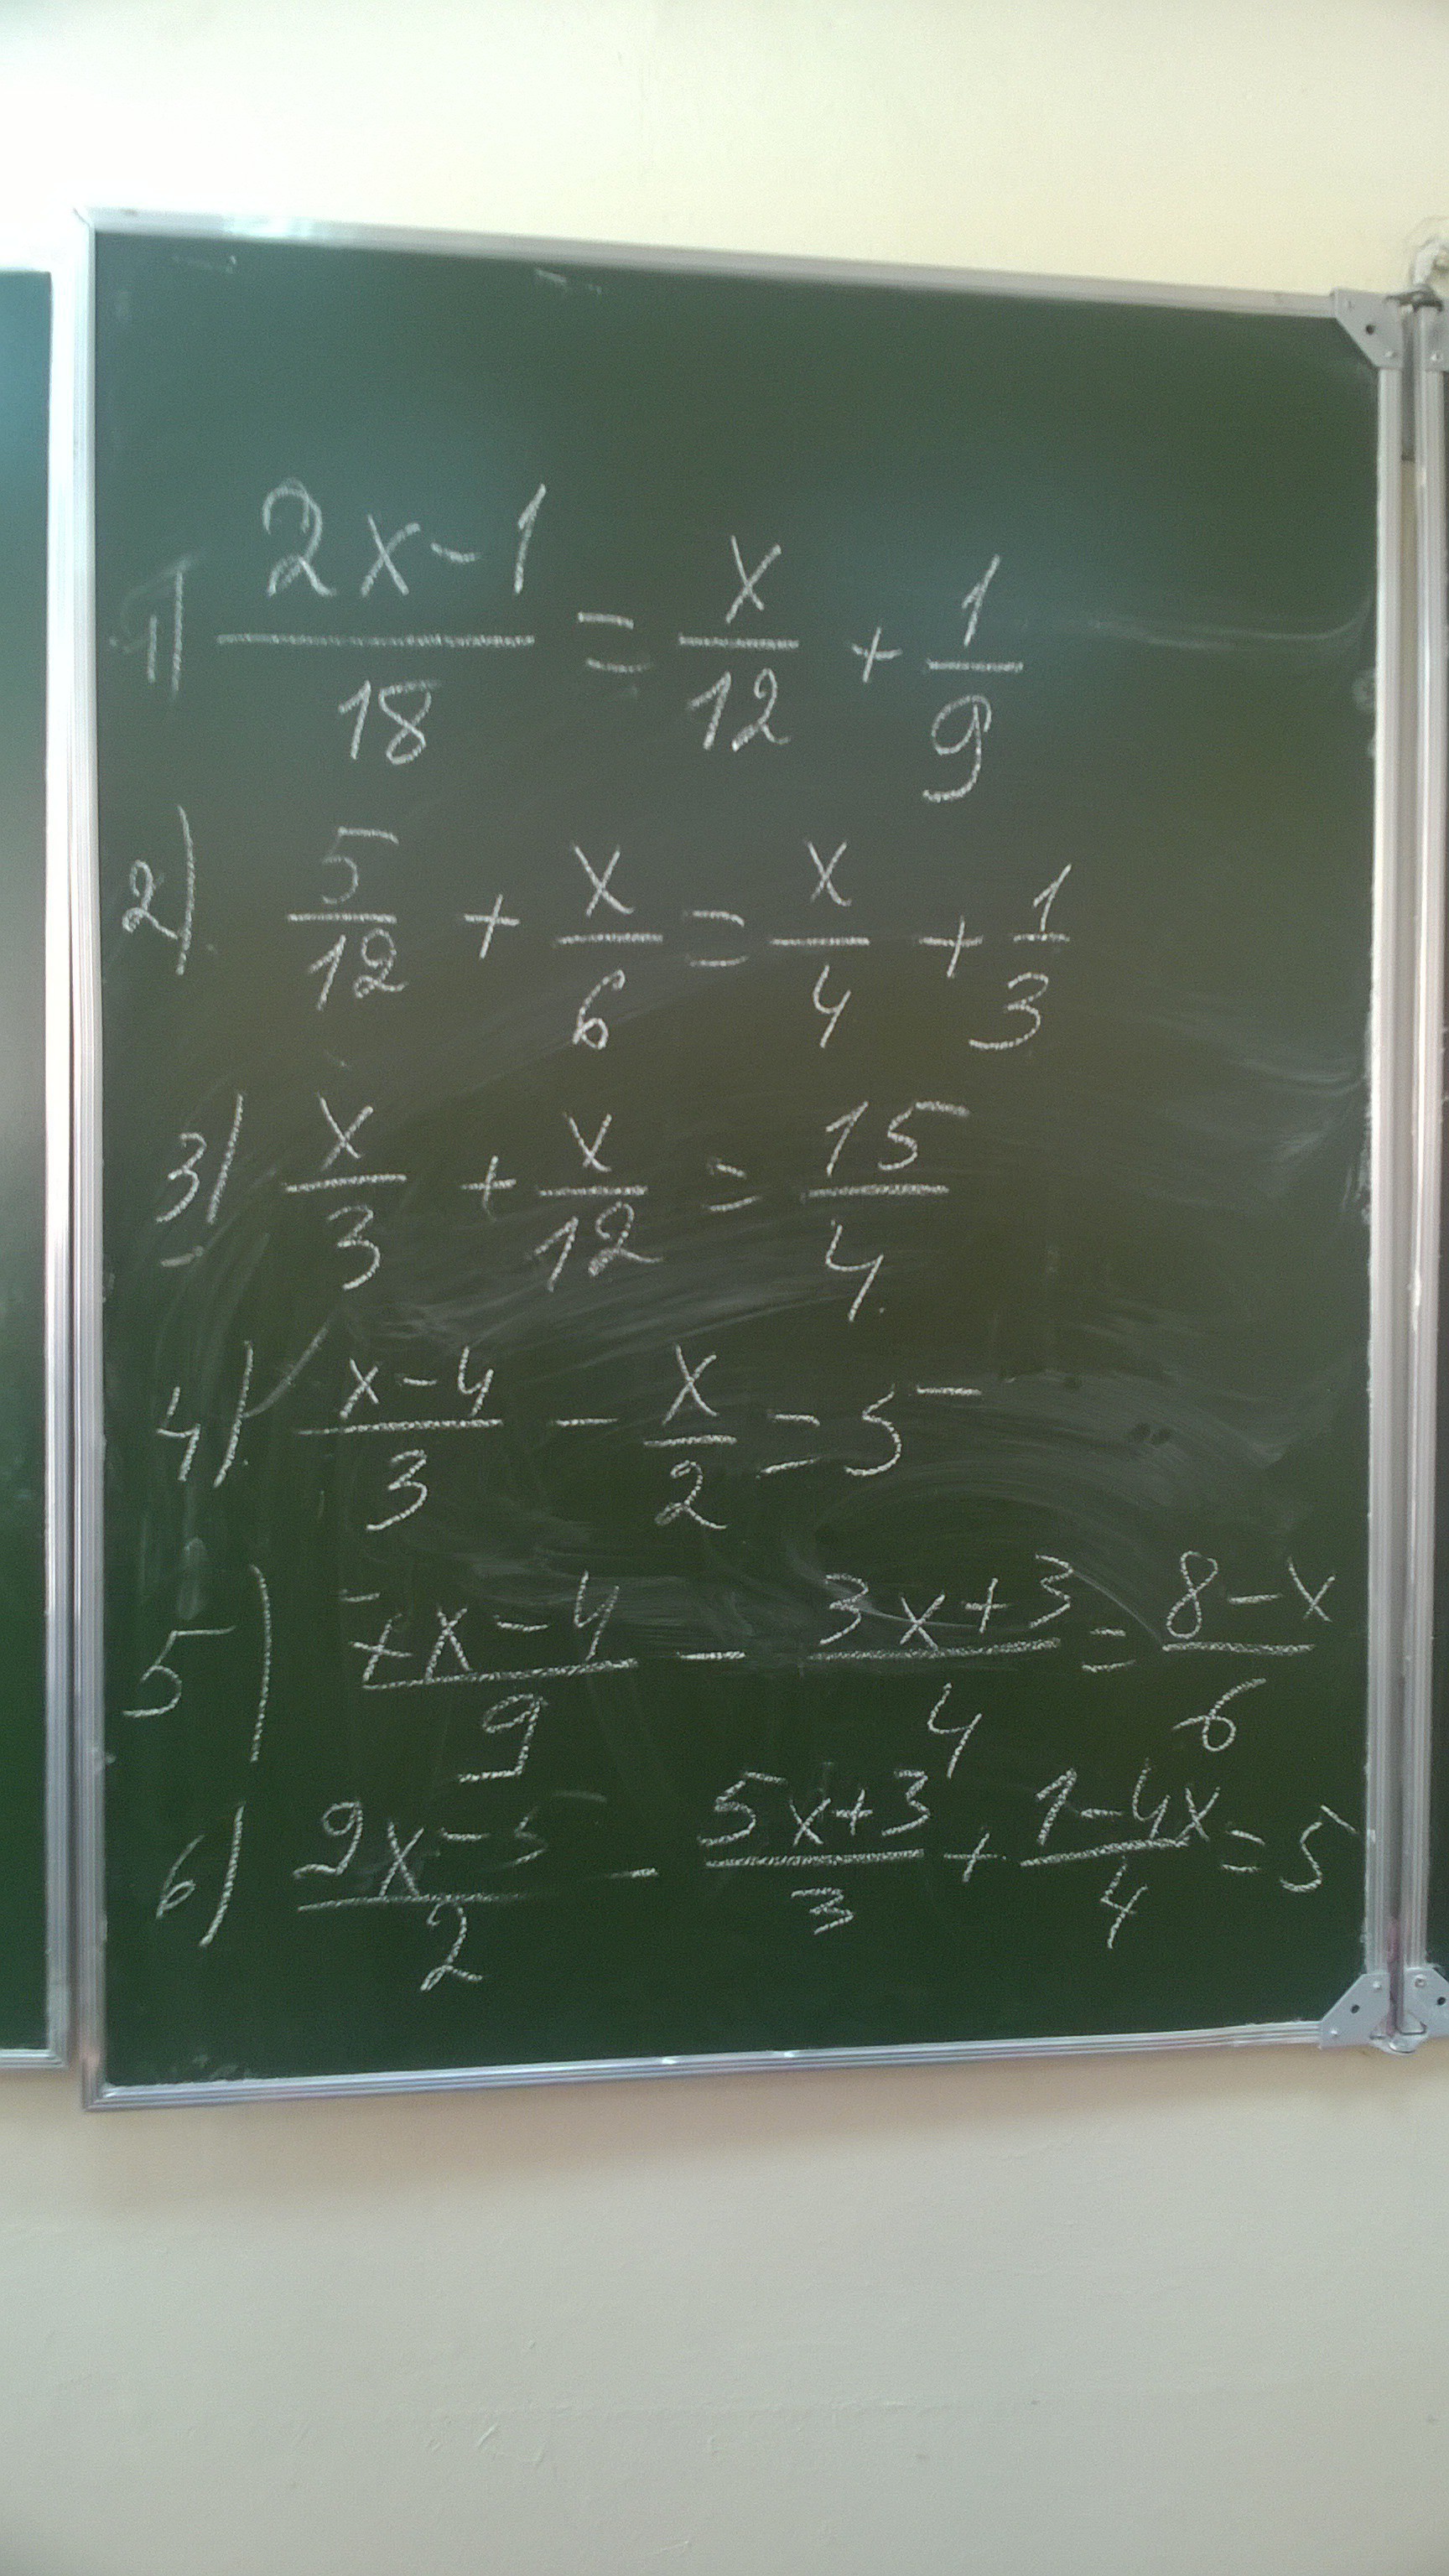 1) (2x-1)/18 = x/12 + 1/9
2) 5/12 + x/6 = x/4 + 1/3
3) x/3 + x/12 = 15/4
4) (x-4)/3 - x/2 = 5
5) (7x-4)/9 - (3x+3)/4 = (8-x)/6
6) (9x-5)/2 - (5x+3)/3 + (1-4x)/4 = 5